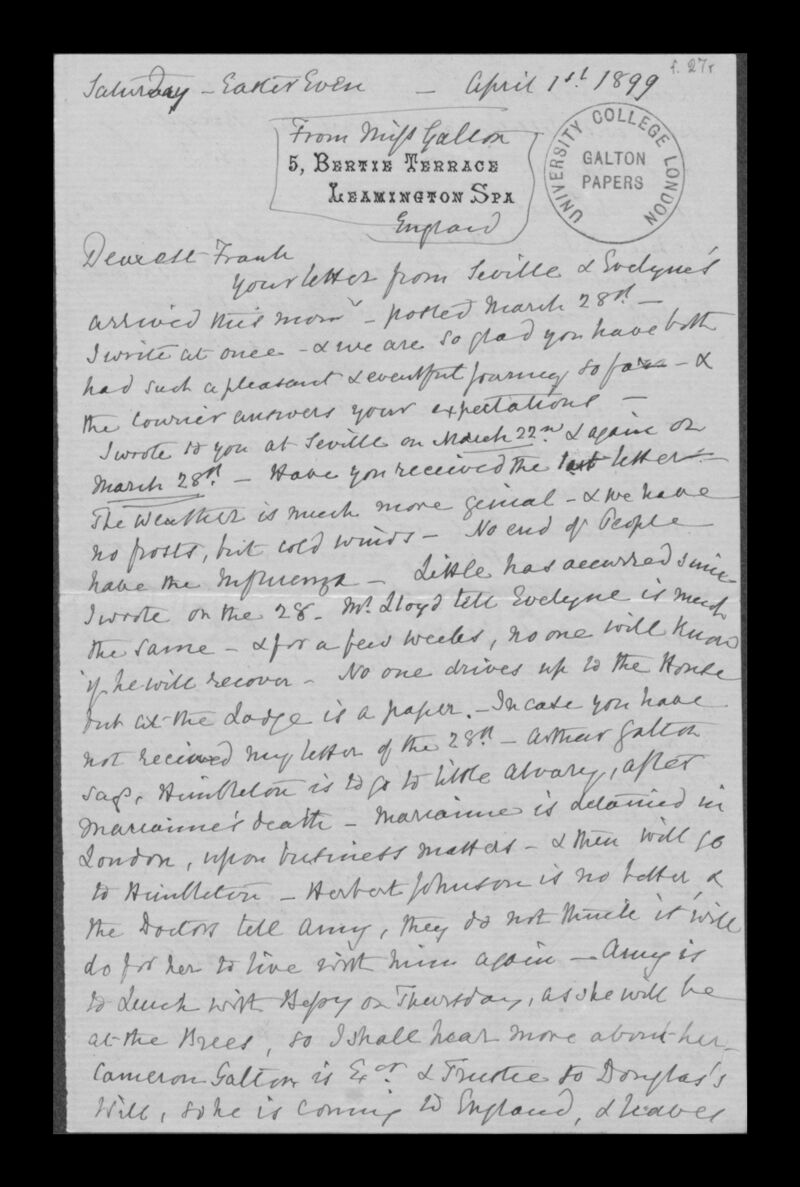 f. 27r
Saturday - Easter Even - April 1st. 1899
From Miss Galton
5, Bertie Terrace
Leamington Spa
England
UNIVERSITY COLLEGE LONDON
GALTON
PAPERS
Dearest Frank
Your letter from Seville & Evelyne's
arrived this morng - posted March 28th -
I write at once - & we are so glad you have both
had such a pleasant & eventful journey so far - &
the Courier answers your expectations -
I wrote to you at Seville on March 22nd & again on
March 28th. - Have you received the last letter -
The weather is much more genial - & we have
no frosts, but cold winds - No end of People
have the Influenza - Little has occurred since
I wrote on the 28 - Mr. Lloyd tell Evelyne is much
the same - & for a few weeks, no one will know
if he will recover - No one drives up to the House
but at the Lodge is a paper. - In case you have
not received my letter of the 28th - Arthur Galton
says, Himbleton is to go to little Alvary, after
Marianne's death - Marianne is detained in
London, upon business matters - & then will go
to Himbleton - Herbert Johnson is no better &
the Doctors tell Amy, they do not think it will
do for her to live with him again - Amy is
to Lunch with Bessy on Thursday, as she will be
at the Brees, so I shall hear more about her -
Cameron Galton is Exor & Trustee to Douglas's
Will, so he is coming to England, & leaves